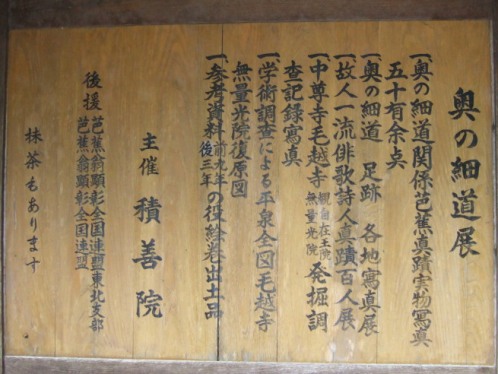 奥の細道展
一、奥の細道関係芭蕉真蹟実物寫真
五十有余点
一、奥の細道 足跡 各地寫真展
一、故人一流俳歌詩人真蹟百人展
一、中尊寺毛越寺観自在王院無量光院発掘調
査記録寫真
一、学術調査による平泉全図毛越寺
無量光院復原図
一、参考資料前九年後三年の役絵巻出土品
主催 積善院
後援 芭蕉翁顕彰全国連盟東北支部
芭蕉翁顕彰全国連盟
抹茶もあります